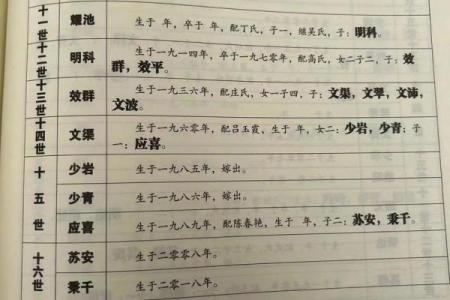 十一世 耀池 生于 年，卒于 年，配丁氏，子一，继吴氏，子：明科。
十二世 明科 生于一九一四年，卒于一九七零年，配高氏，女二子二，子：效
群，效平。
十三世 效群 生于一九三六年，配庄氏，女一子四，子：文渠，文翠，文沛，
文波。
十四世 文渠 生于一九六零年，配吕玉霞，生于 年，女二：少岩，少青；子
一：应喜。
十五世 少岩 生于一九八五年，嫁出。
少青 生于一九八六年，嫁出。
应喜 生于一九八九年，配陈春艳，生于 年，子二：苏安，秉千。
十六世 苏安 生于二零零八年。
秉千 生于二零一八年。